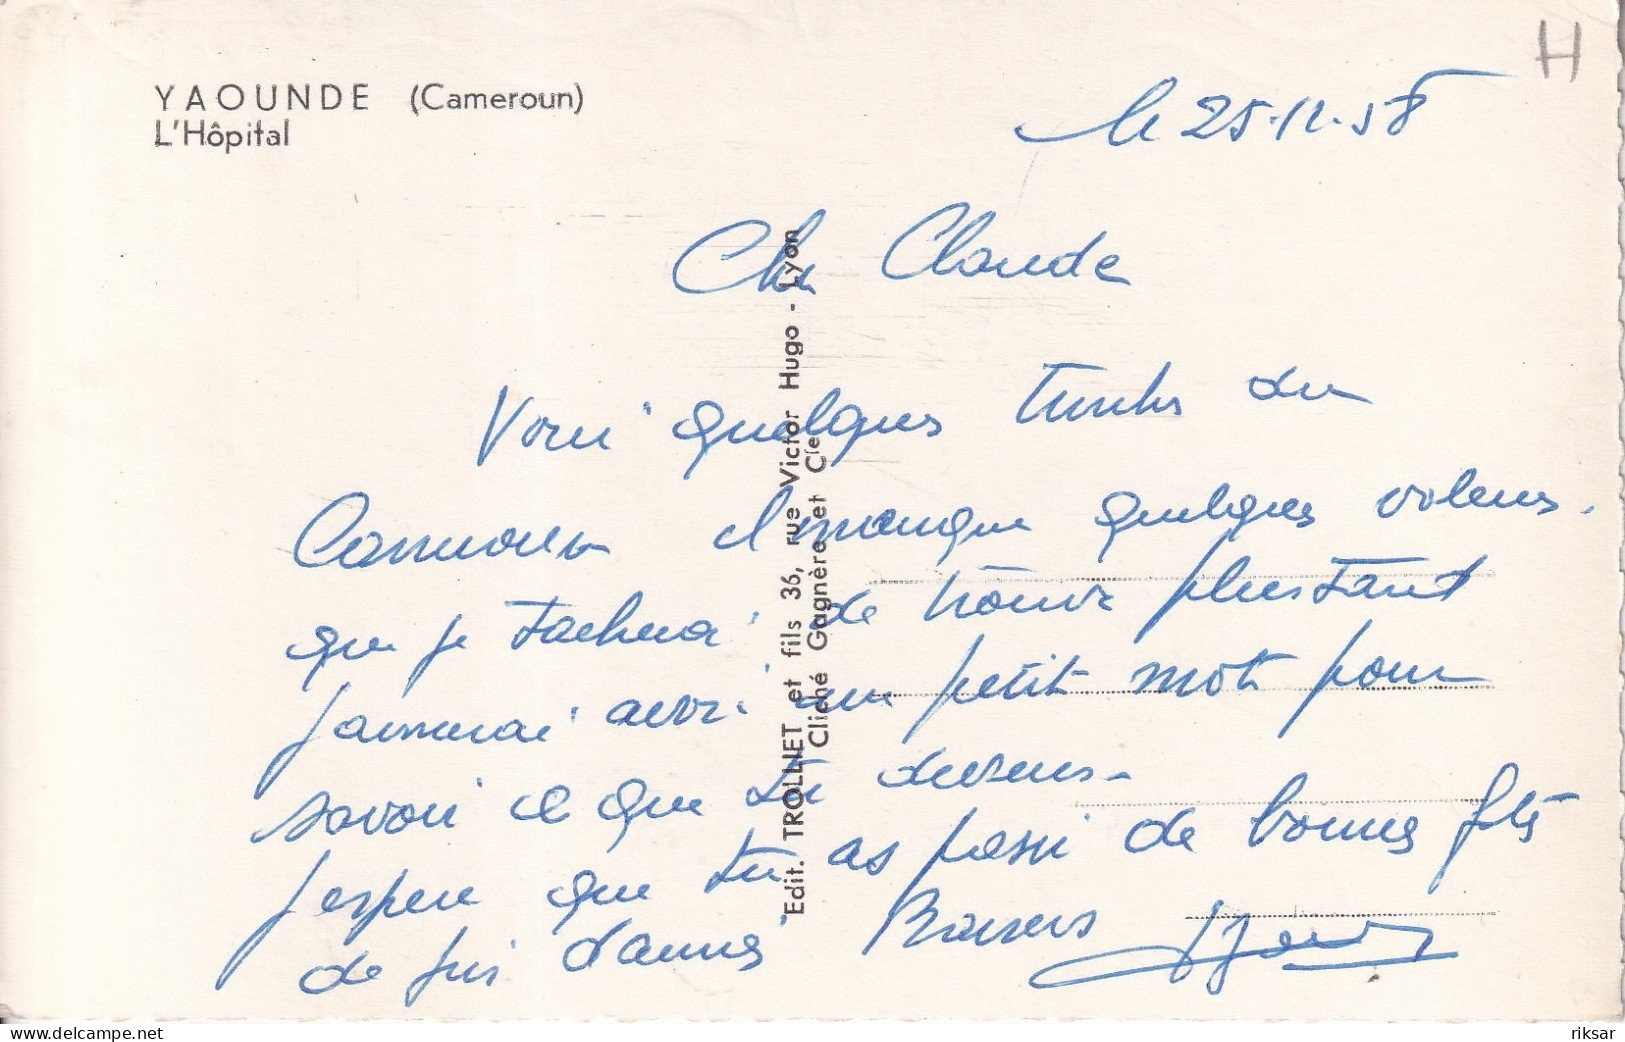 YAOUNDE (Cameroun)
L'Hôpital
H
le 25.12.58
Cher Claude
Voici quelques timbres du
Cameroun il manque quelques valeurs.
que je tacherai de trouver plus tard
j'aimerai avoir un petit mot pour
savoir ce que tu deviens.
J'espere que tu as passé de bonnes fetes
de fin d'année Baisers
Edit. TROLLIET et fils 36, rue Victor Hugo - Lyon
Cliché Gagnère et Cie
www.delcampe.net
riksar